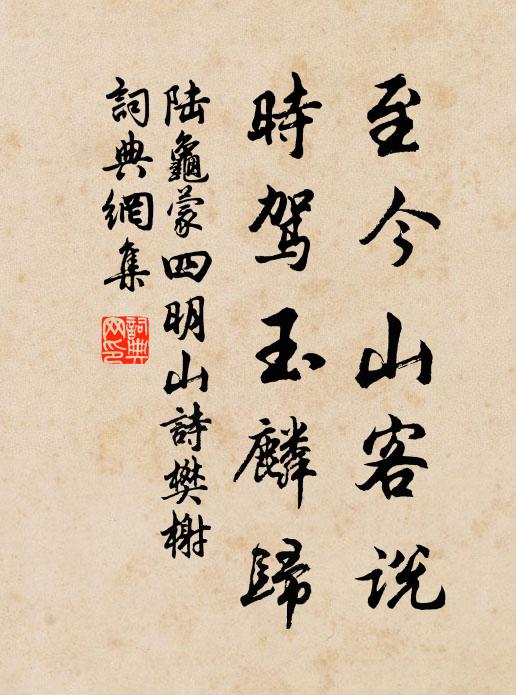 至今山客说
時駕玉麟歸
陆龜蒙四明山詩樊榭
詞典網集
詞典
网印